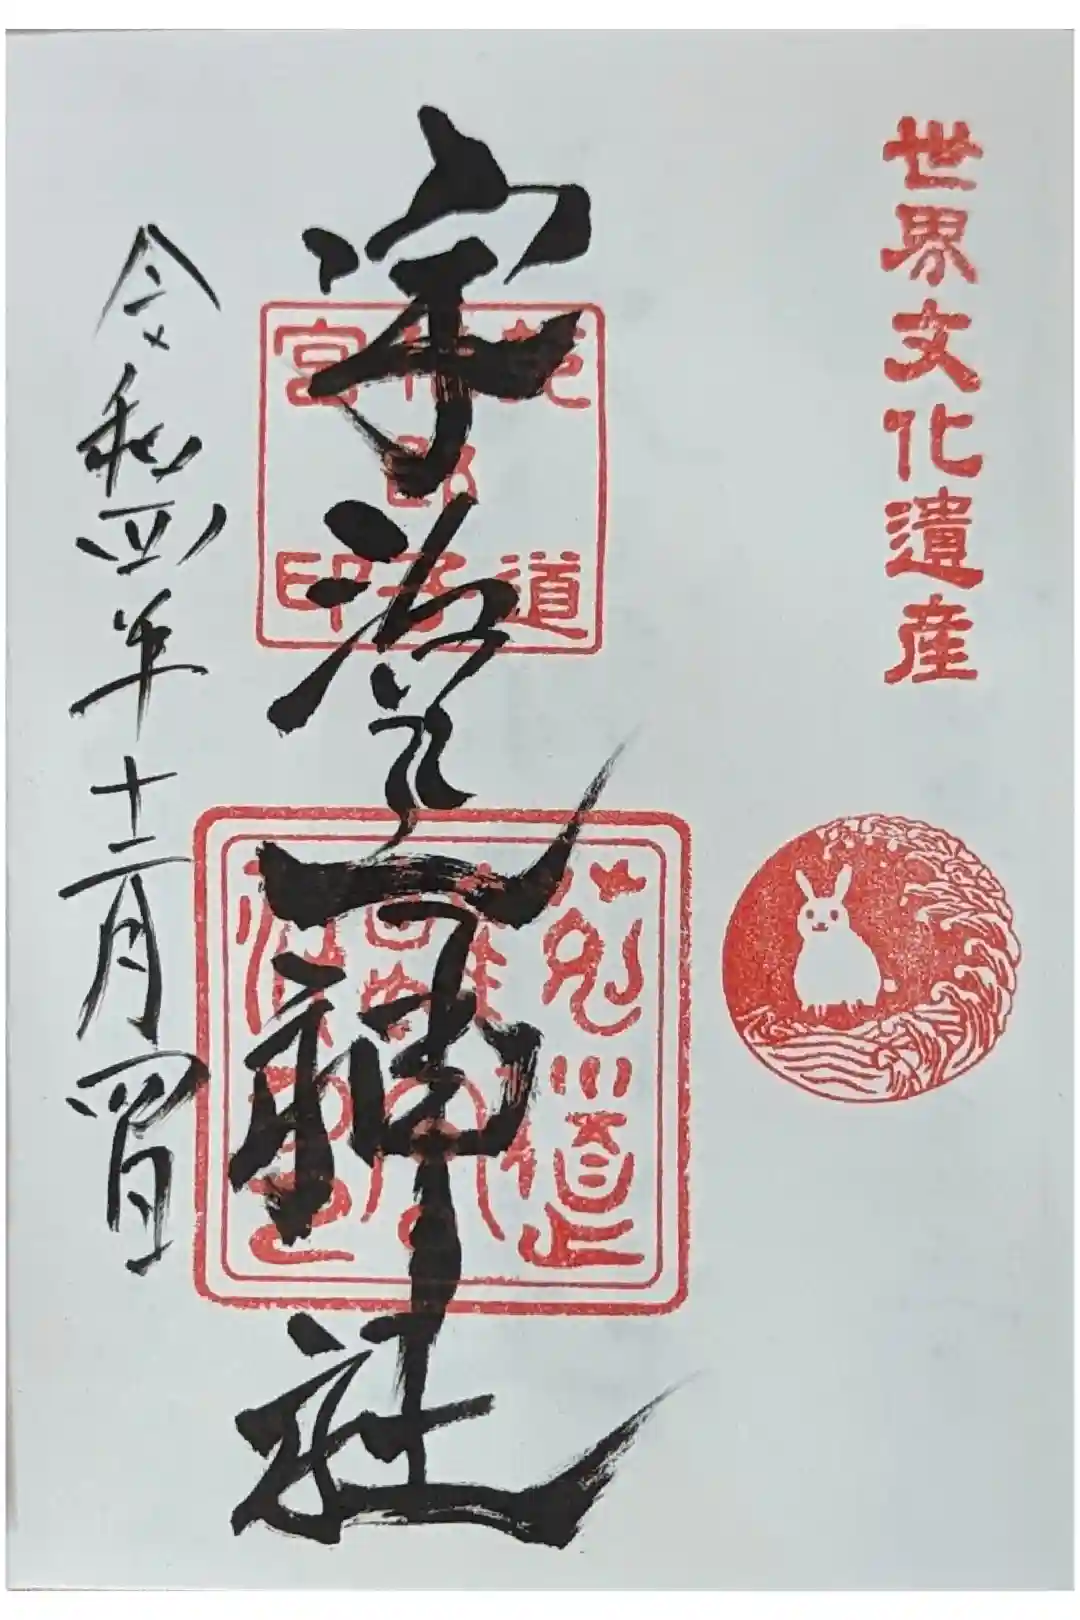 世界文化遺産
宇治上神社
菟道
稚郎子
宮印
令和四年十二月四日